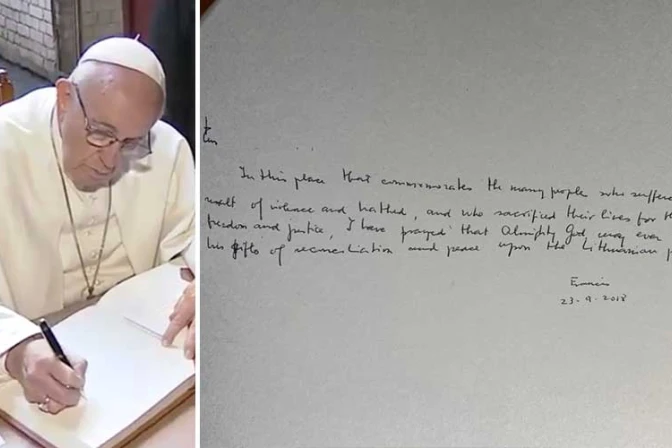 In this place that commemorates the many people who suffere
result of violence and hatred, and who sacrificed their lives for
freedom and justice, I have prayed that Almighty God may ever
his gifts of reconciliation and peace upon the Lithuanian p
23-9-2018